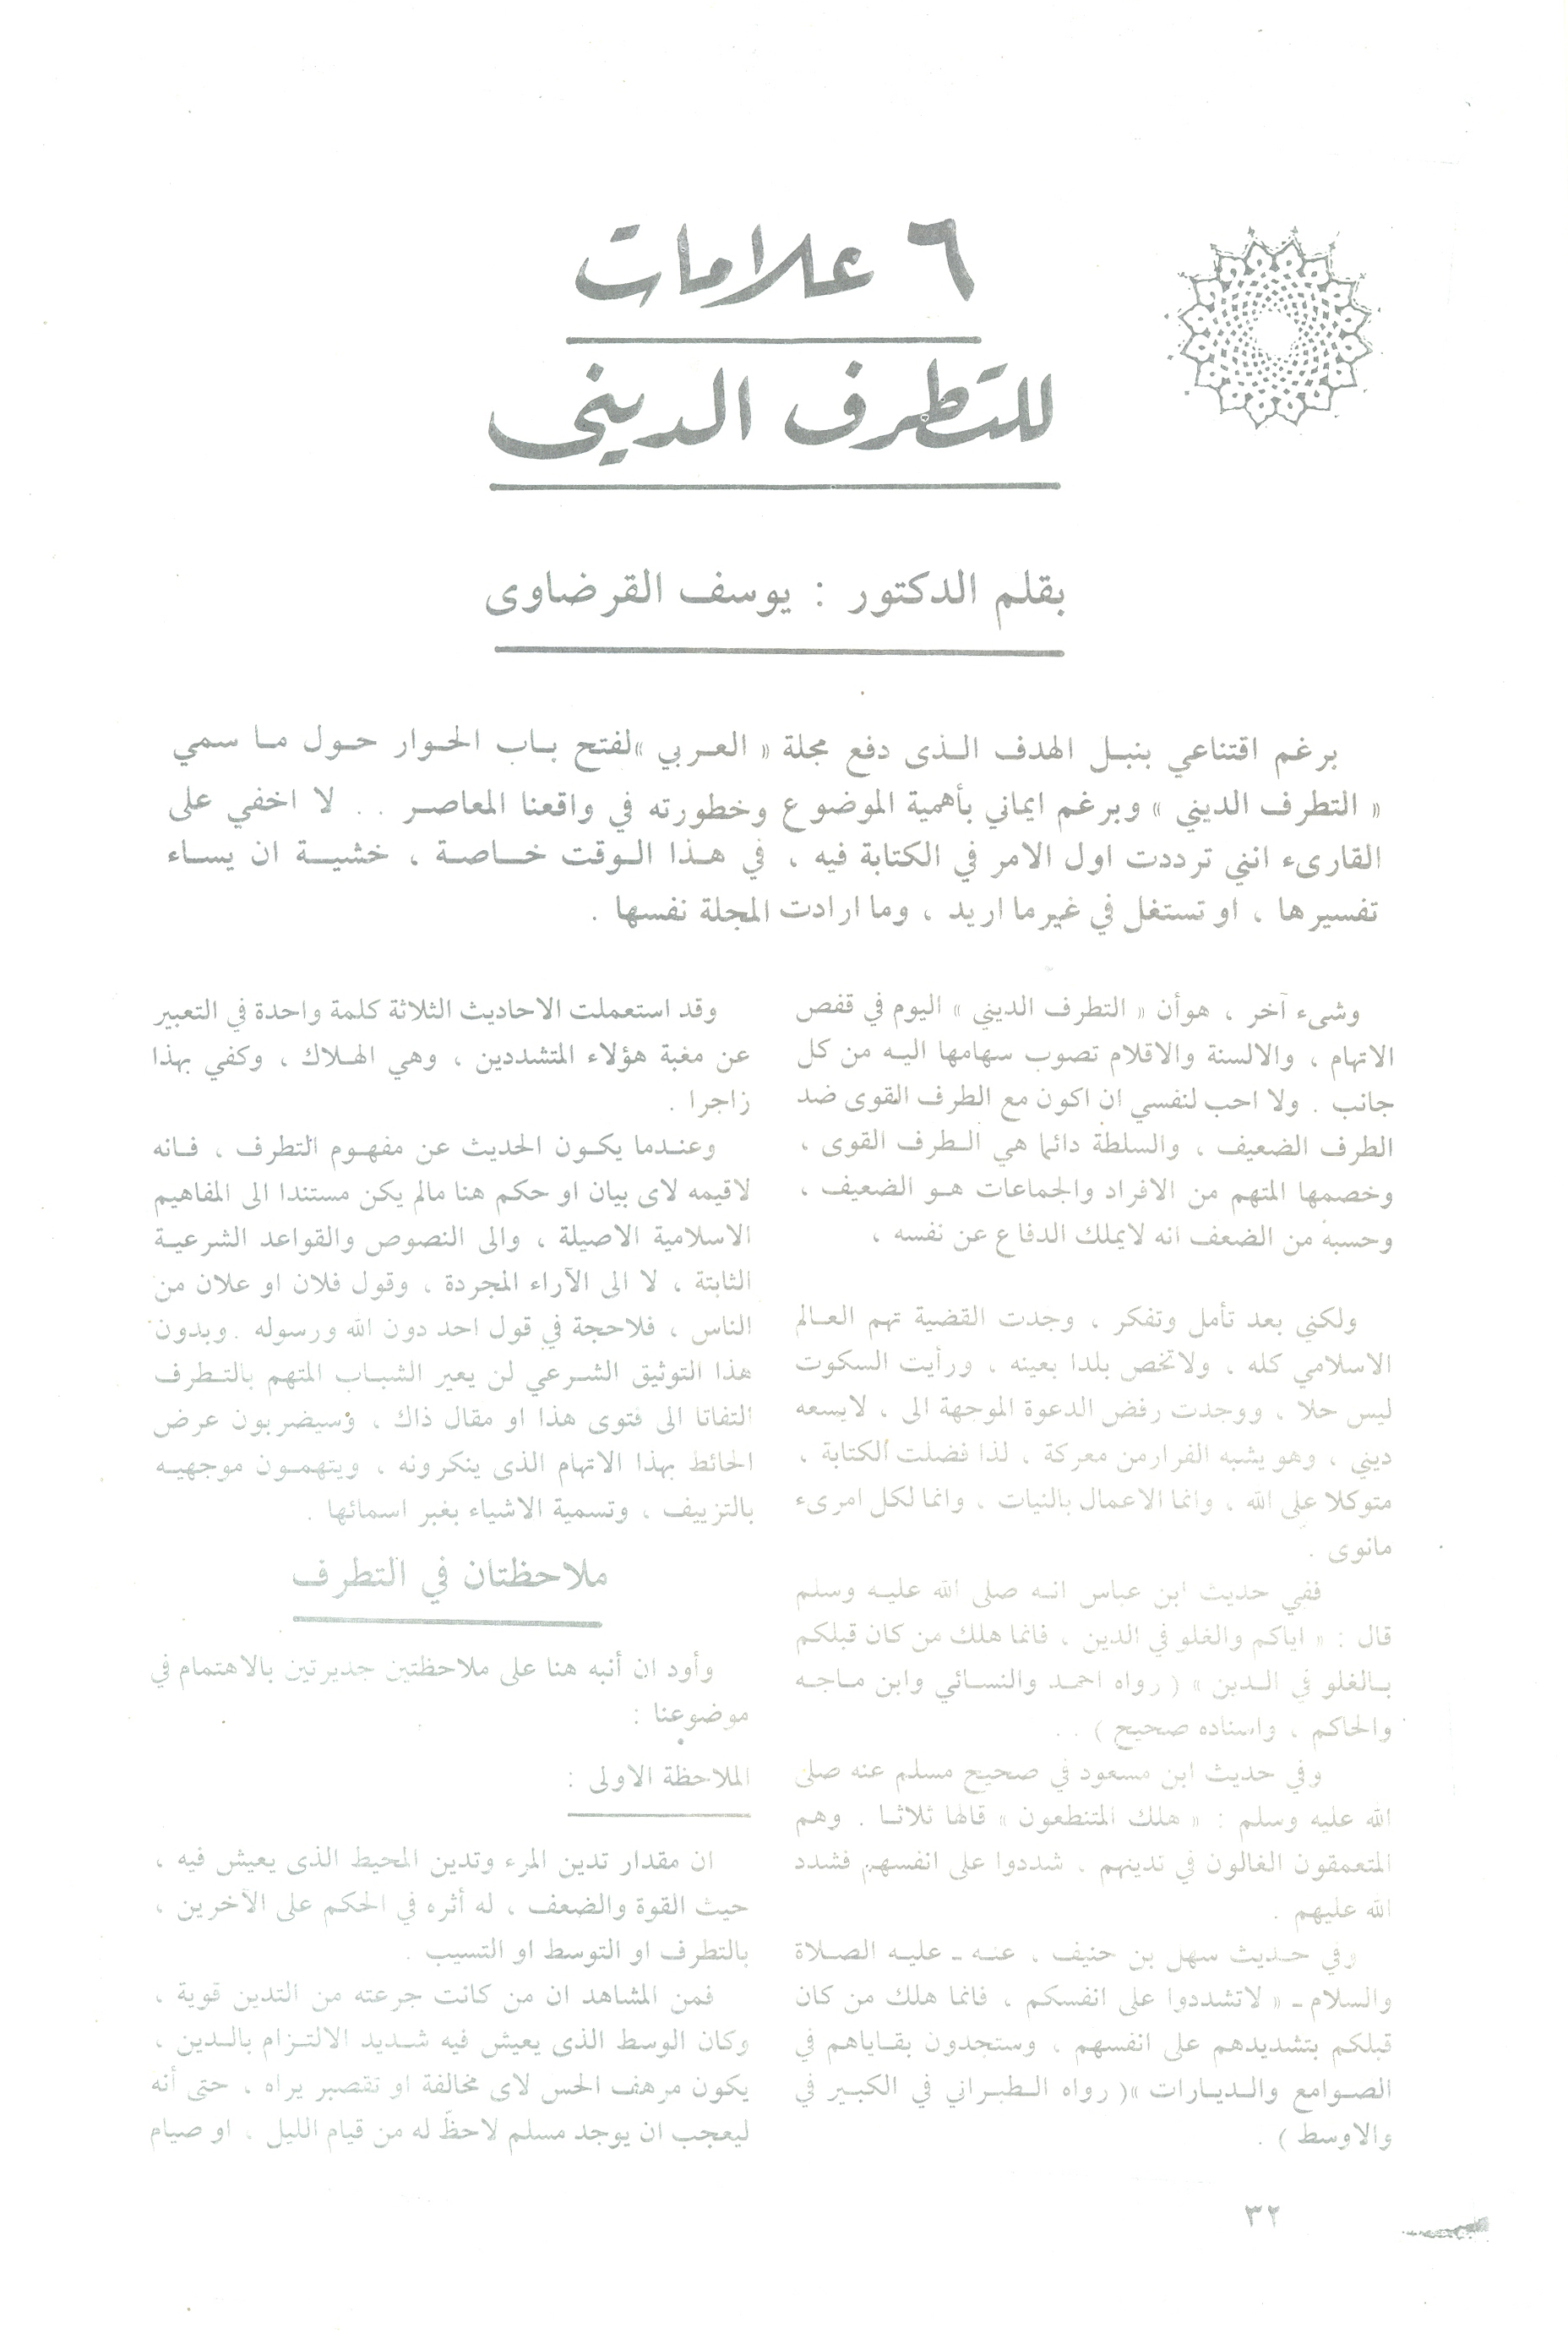 ٦ علامات
للتطرف الدينى
بقلم الدكتور : يوسف القرضاوى
برغم اقتناعي بنبل الهدف الذى دفع مجلة « العربي »لفتح باب الحوار حول ما سمي
« التطرف الديني » وبرغم ايماني بأهمية الموضوع وخطورته في واقعنا المعاصر . . لا اخفي على
القارىء انني ترددت اول الامر في الكتابة فيه ، في هذا الوقت خاصة ، خشية ان يساء
تفسيرها ، او تستغل في غير ما اريد ، وما ارادت المجلة نفسها .
وشىء آخر ، هو أن « التطرف الديني » اليوم في قفص
الاتهام ، والالسنة والاقلام تصوب سهامها اليه من كل
جانب . ولا احب لنفسي ان اكون مع الطرف القوى ضد
الطرف الضعيف ، والسلطة دائما هي الطرف القوى ،
وخصمها المتهم من الافراد والجماعات هو الضعيف ،
وحسبه من الضعف انه لايملك الدفاع عن نفسه ،
ولكني بعد تأمل وتفكر ، وجدت القضية تهم العالم
الاسلامي كله ، ولاتخص بلدا بعينه ، ورأيت السكوت
ليس حلا ، ووجدت رفض الدعوة الموجهة الى ، لايسعه
ديني ، وهو يشبه الفرار من معركة ، لذا فضلت الكتابة ،
متوكلا على الله ، وانما الاعمال بالنيات ، وانما لكل امرىء
مانوى .
ففي حديث ابن عباس انه صلى الله عليه وسلم
قال : « اياكم والغلو في الدين ، فانما هلك من كان قبلكم
بالغلو في الدين » ( رواه احمد والنسائي وابن ماجه
والحاكم ، واسناده صحيح ) . .
وفي حديث ابن مسعود في صحيح مسلم عنه صلى
الله عليه وسلم : « هلك المتنطعون » قالها ثلاثا . وهم
المتعمقون الغالون في تدينهم ، شددوا على انفسهم فشدد
الله عليهم .
وفي حديث سهل بن حنيف ، عنه ـ عليه الصلاة
والسلام ـ « لاتشددوا على انفسكم ، فانما هلك من كان
قبلكم بتشديدهم على انفسهم ، وستجدون بقاياهم في
الصوامع والديارات »( رواه الطبراني في الكبير في
والاوسط ) .
وقد استعملت الاحاديث الثلاثة كلمة واحدة في التعبير
عن مغبة هؤلاء المتشددين ، وهي الهلاك ، وكفي بهذا
زاجرا .
وعندما يكون الحديث عن مفهوم التطرف ، فانه
لاقيمه لاى بيان او حكم هنا مالم يكن مستندا الى المفاهيم
الاسلامية الاصيلة ، والى النصوص والقواعد الشرعية
الثابتة ، لا الى الآراء المجردة ، وقول فلان او علان من
الناس ، فلاحجة في قول احد دون الله ورسوله . وبدون
هذا التوثيق الشرعي لن يعير الشباب المتهم بالتطرف
التفاتا الى فتوى هذا او مقال ذاك ، وسيضربون عرض
الحائط بهذا الاتهام الذى ينكرونه ، ويتهمون موجهيه
بالتزييف ، وتسمية الاشياء بغير اسمائها .
ملاحظتان في التطرف
وأود ان أنبه هنا على ملاحظتين جديرتين بالاهتمام في
موضوعنا :
الملاحظة الاولى :
ان مقدار تدين المرء وتدين المحيط الذى يعيش فيه ،
حيث القوة والضعف ، له أثره في الحكم على الآخرين ،
بالتطرف او التوسط او التسيب .
فمن المشاهد ان من كانت جرعته من التدين قوية ،
وكان الوسط الذى يعيش فيه شديد الالتزام بالدين ،
يكون مرهف الحس لاى مخالفة او تقصير يراه ، حتى أنه
ليعجب ان يوجد مسلم لاحظ له من قيام الليل ، او صيام
٣٢